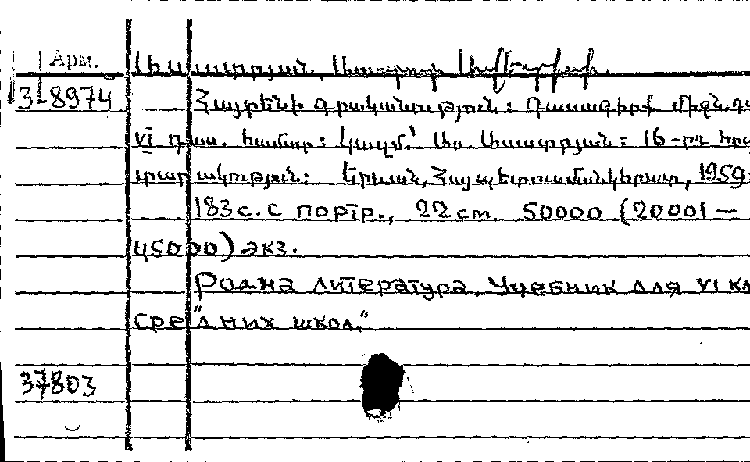 Арм.
Ասատրյան, Ասատուր
3-8974 Հայրենի գրականություն: Դասագիրք միջն. դպ
VI դաս. համար: Կազմ.՝ Աս. Ասատրյան: 16-րդ հրա
տարակություն: Երևան, Հայպետուսմանկհրատ, 1959.
183 с. с портр., 22 см. 50000 (20001 —
45000) экз.
Родна литература. Учебник для VI кл
сре"дних школ."
37803